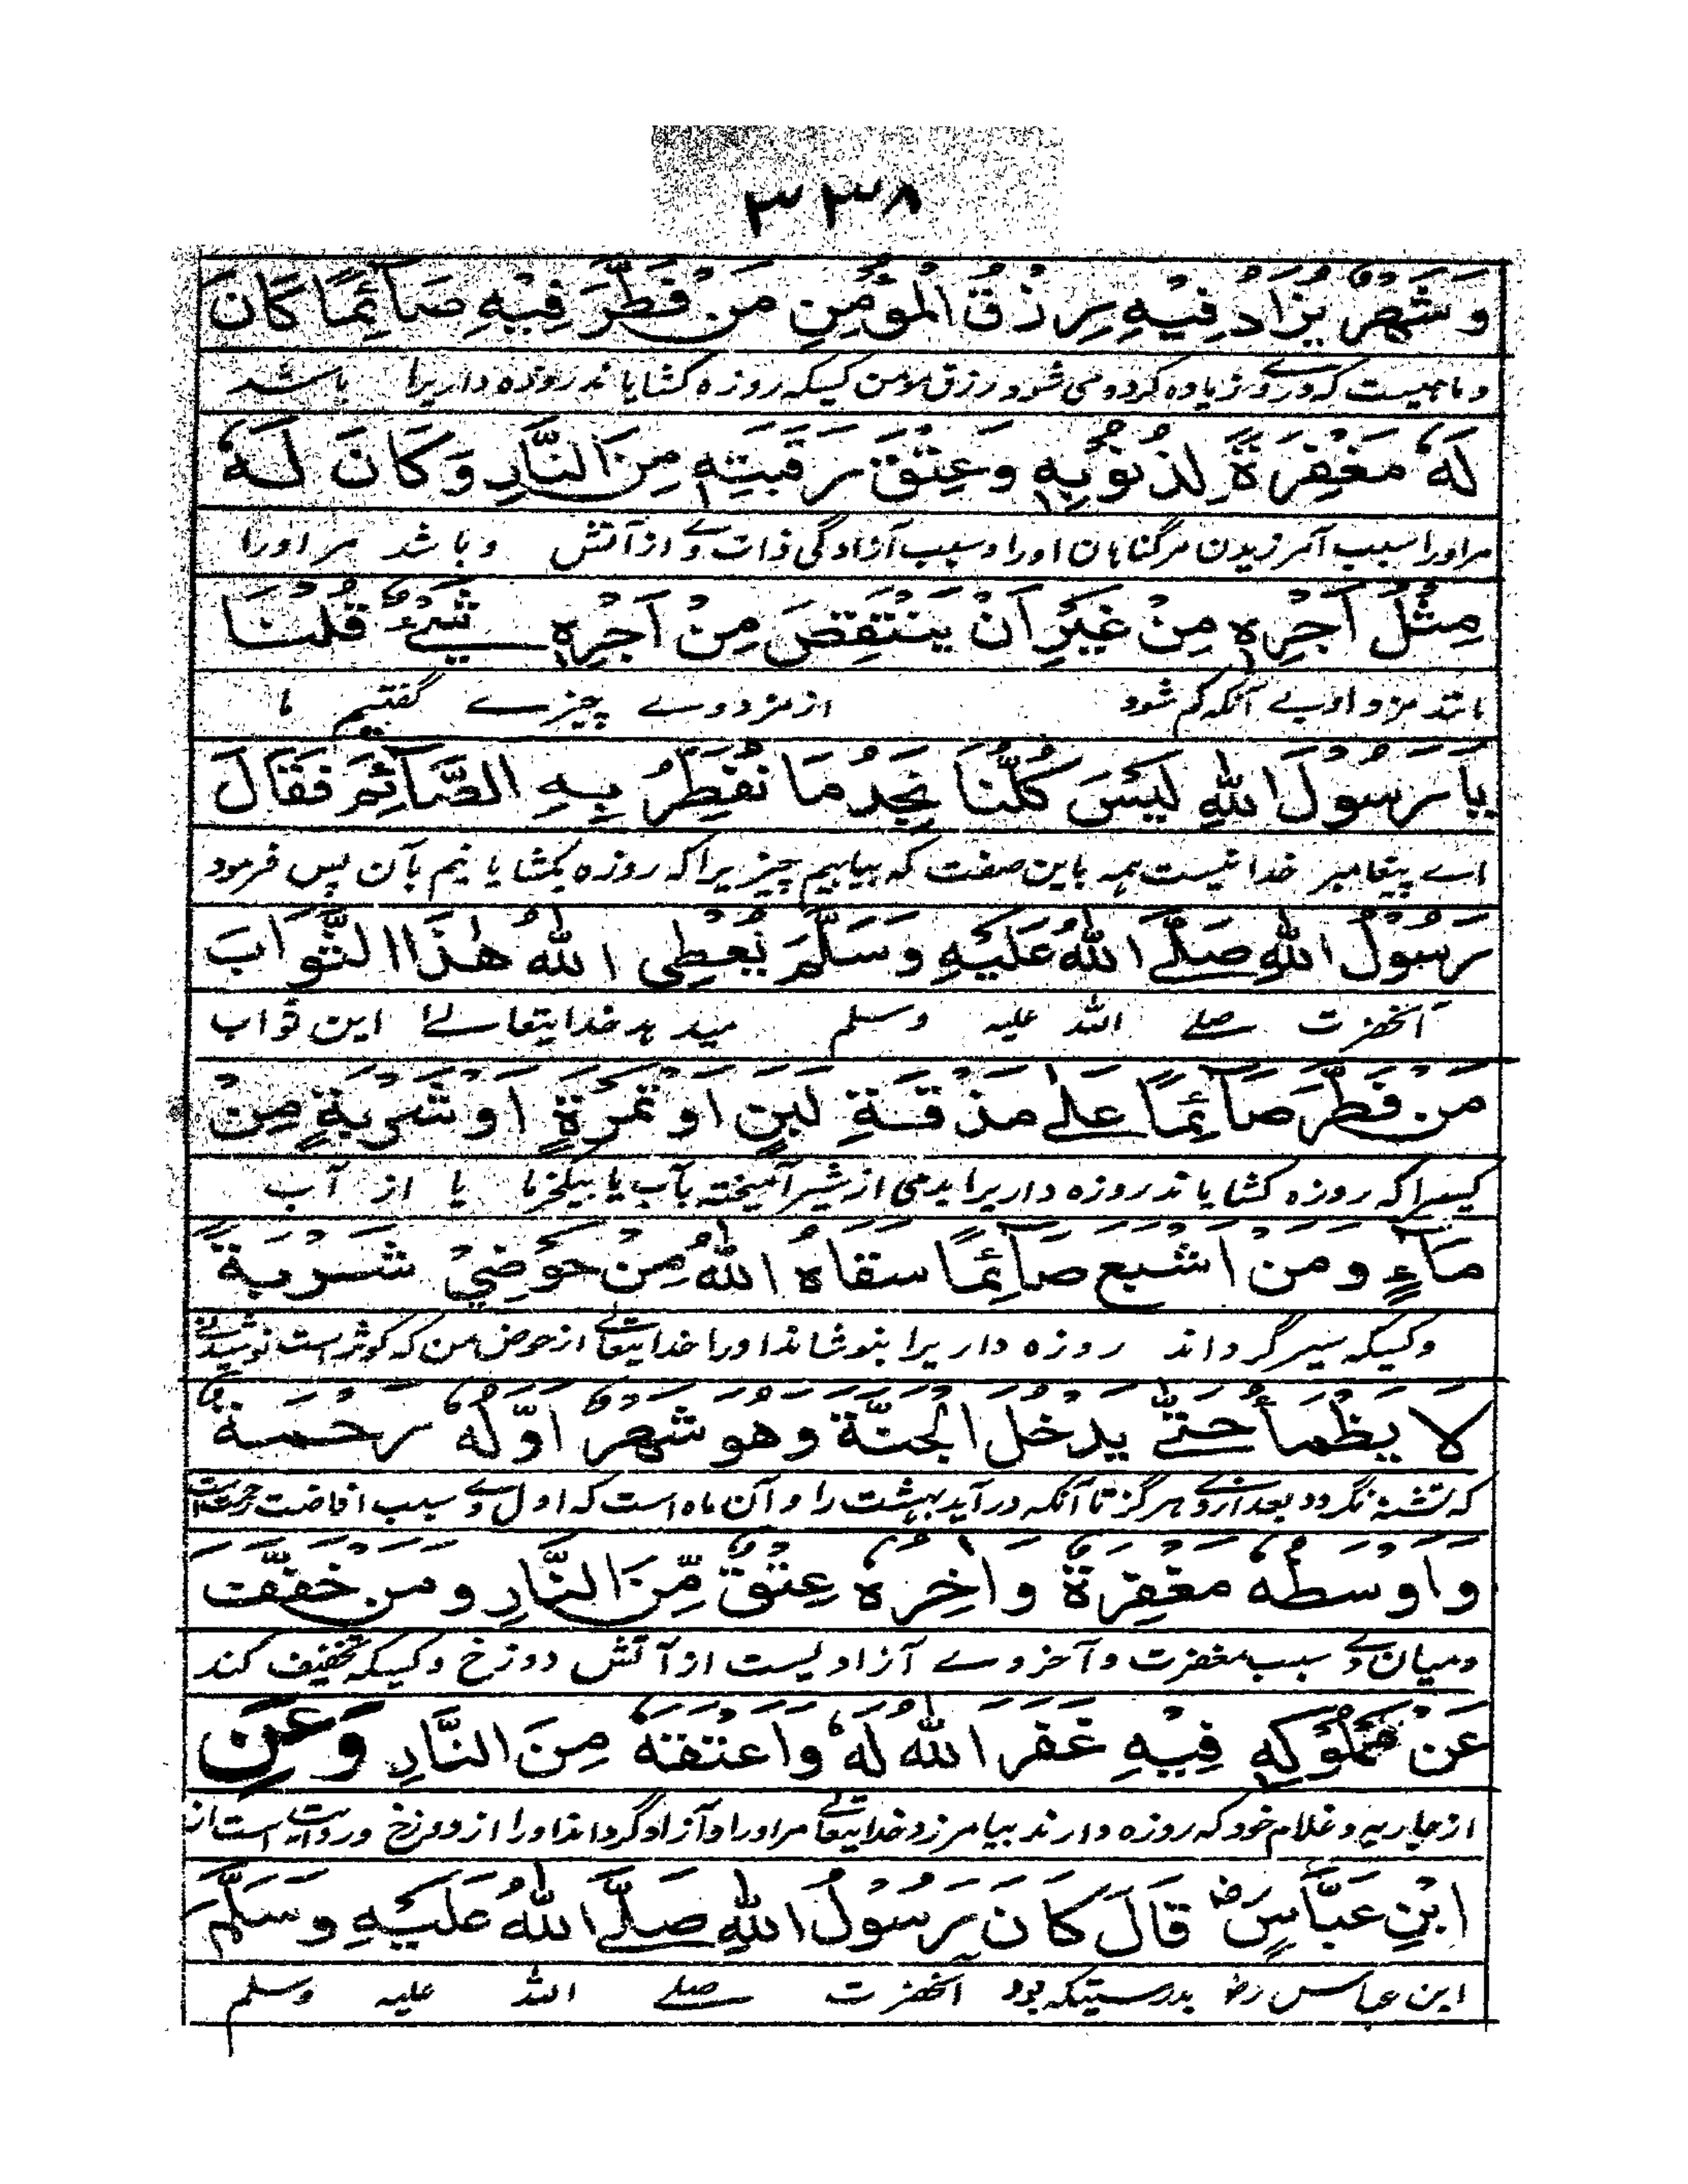 ٣٣٨
وَشَهْرٌ يُزَادُ فِيْهِ رِزْقُ الْمُؤْمِنِ مَنْ فَطَّرَ فِيْهِ صَآئِمًا كَانَ
و ماهیست که در وے زیاده کرده می شود رزق مومن کسیکه روزه کشایاند روزه داریرا باشد
لَهٗ مَغْفِرَةً لِذُنُوْبِهٖ وَعِتْقَ رَقَبَتِهٖ مِنَ النَّارِ وَكَانَ لَهٗ
مر او را سبب آمرزیدن مر گناهان او را و سبب آزادگی ذات وے از آتش و باشد مر او را
مِثْلُ اَجْرِهٖ مِنْ غَيْرِ اَنْ يَنْتَقِصَ مِنْ اَجْرِهٖ شَيْءٌ قُلْنَا
مانند مزد او بے آنکه کم شود از مزد وے چیزے گفتیم ما
يَا رَسُوْلَ اللهِ لَيْسَ كُلُّنَا نَجِدُ مَا نُفَطِّرُ بِهِ الصَّآئِمَ فَقَالَ
اے پیغامبر خدا نیست همه باین صفت که بیابیم چیزیرا که روزه بکشایانیم بآن پس فرمود
رَسُوْلُ اللهِ صَلَّے اللهُ عَلَيْهِ وَسَلَّمَ يُعْطِى اللهُ هٰذَا الثَّوَابَ
آنحضرت صلے الله علیه وسلم میدهد خدایتعالے این ثواب
مَنْ فَطَّرَ صَآئِمًا عَلٰے مَذْقَةِ لَبَنٍ اَوْ تَمْرَةٍ اَوْ شَرْبَةٍ مِنْ
کسیرا که روزه کشایاند روزه داریرا بدمی از شیر آمیخته بآب یا بیکخرما یا از آب
مَآءٍ وَمَنْ اَشْبَعَ صَآئِمًا سَقَاهُ اللهُ مِنْ حَوْضِيْ شَرْبَةً
و کسیکه سیر گرداند روزه داریرا بنوشاند او را خدایتعالے از حوض من که کوثر است نوشیدنے
لَا يَظْمَأُ حَتّٰے يَدْخُلَ الْجَنَّةَ وَهُوَ شَهْرٌ اَوَّلُهٗ رَحْمَةٌ
که تشنه نگردد بعد ازوے هرگز تا آنکه درآید بهشت را و آن ماه است که اول وے سبب افاضت رحمت است
وَاَوْسَطُهٗ مَغْفِرَةٌ وَاٰخِرُهٗ عِتْقٌ مِّنَ النَّارِ وَمَنْ خَفَّفَ
و میان وے سبب مغفرت و آخر وے آزادیست از آتش دوزخ و کسیکه تخفیف کند
عَنْ مَمْلُوْكِهٖ فِيْهِ غَفَرَ اللهُ لَهٗ وَاَعْتَقَهٗ مِنَ النَّارِ وَعَنِ
از جاریه و غلام خود که روزه دارند بیامرزد خدایتعالے مر او را و آزاد گرداند او را از دوزخ و روایت است از
ابْنِ عَبَّاسٍ رض قَالَ كَانَ رَسُوْلُ اللهِ صَلَّے اللهُ عَلَيْهِ وَسَلَّمَ
ابن عباس رض بدرستیکه بود آنحضرت صلے الله علیه وسلم